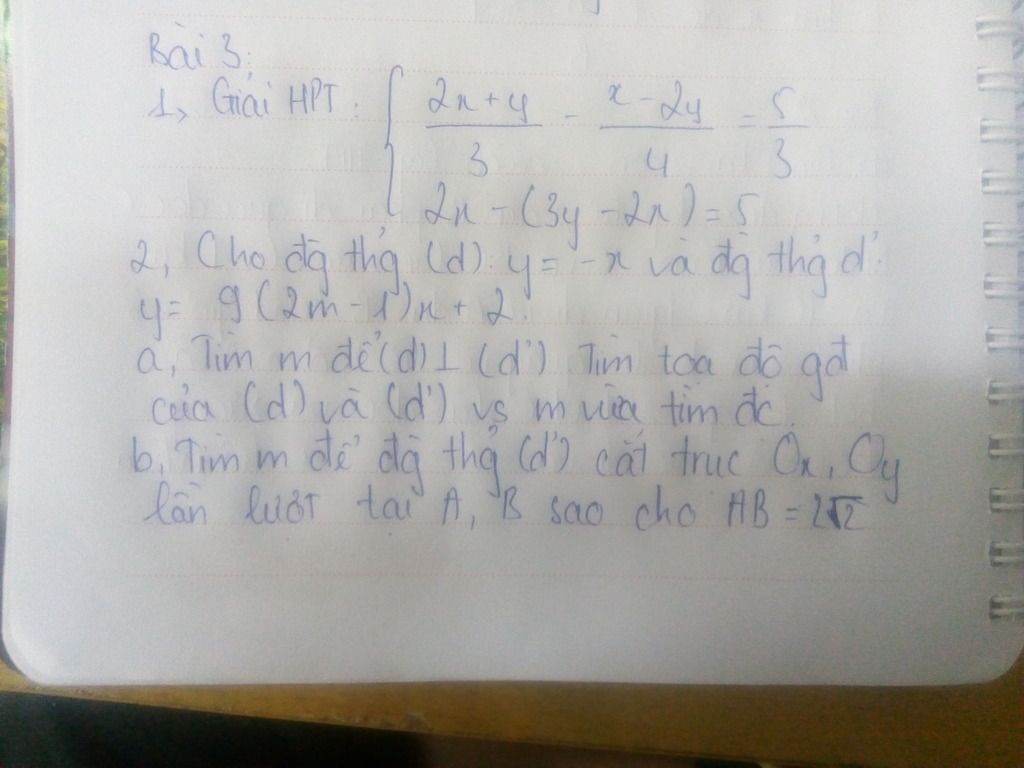 Bài 3:
1, Giải HPT: { (2x+y)/3 - (x-2y)/4 = 5/3
2x-(3y-2x)=5
2, Cho đg thg̉ (d): y=-x và đg thg̉ d':
y= 9(2m-1)x+2.
a, Tìm m để (d)⊥(d') Tìm toạ độ gđ
của (d) và (d') vs m vừa tìm đc.
b, Tìm m để đg thg̉ (d') cắt trục Ox, Oy
lần lượt tại A, B sao cho AB=2√2